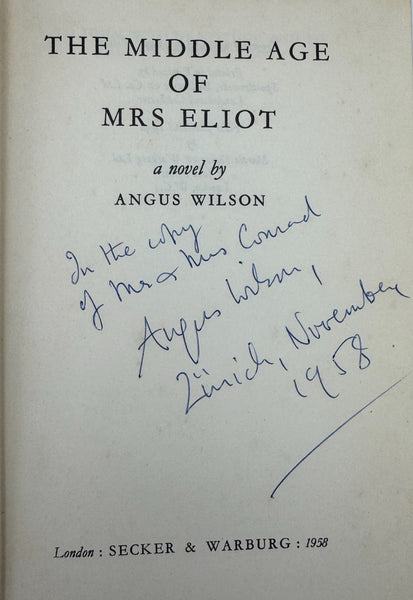 THE MIDDLE AGE
OF
MRS ELIOT
a novel by
ANGUS WILSON
In the copy
of Mr & Mrs Conrad
Angus Wilson,
Zürich, November
1958
London : SECKER & WARBURG : 1958